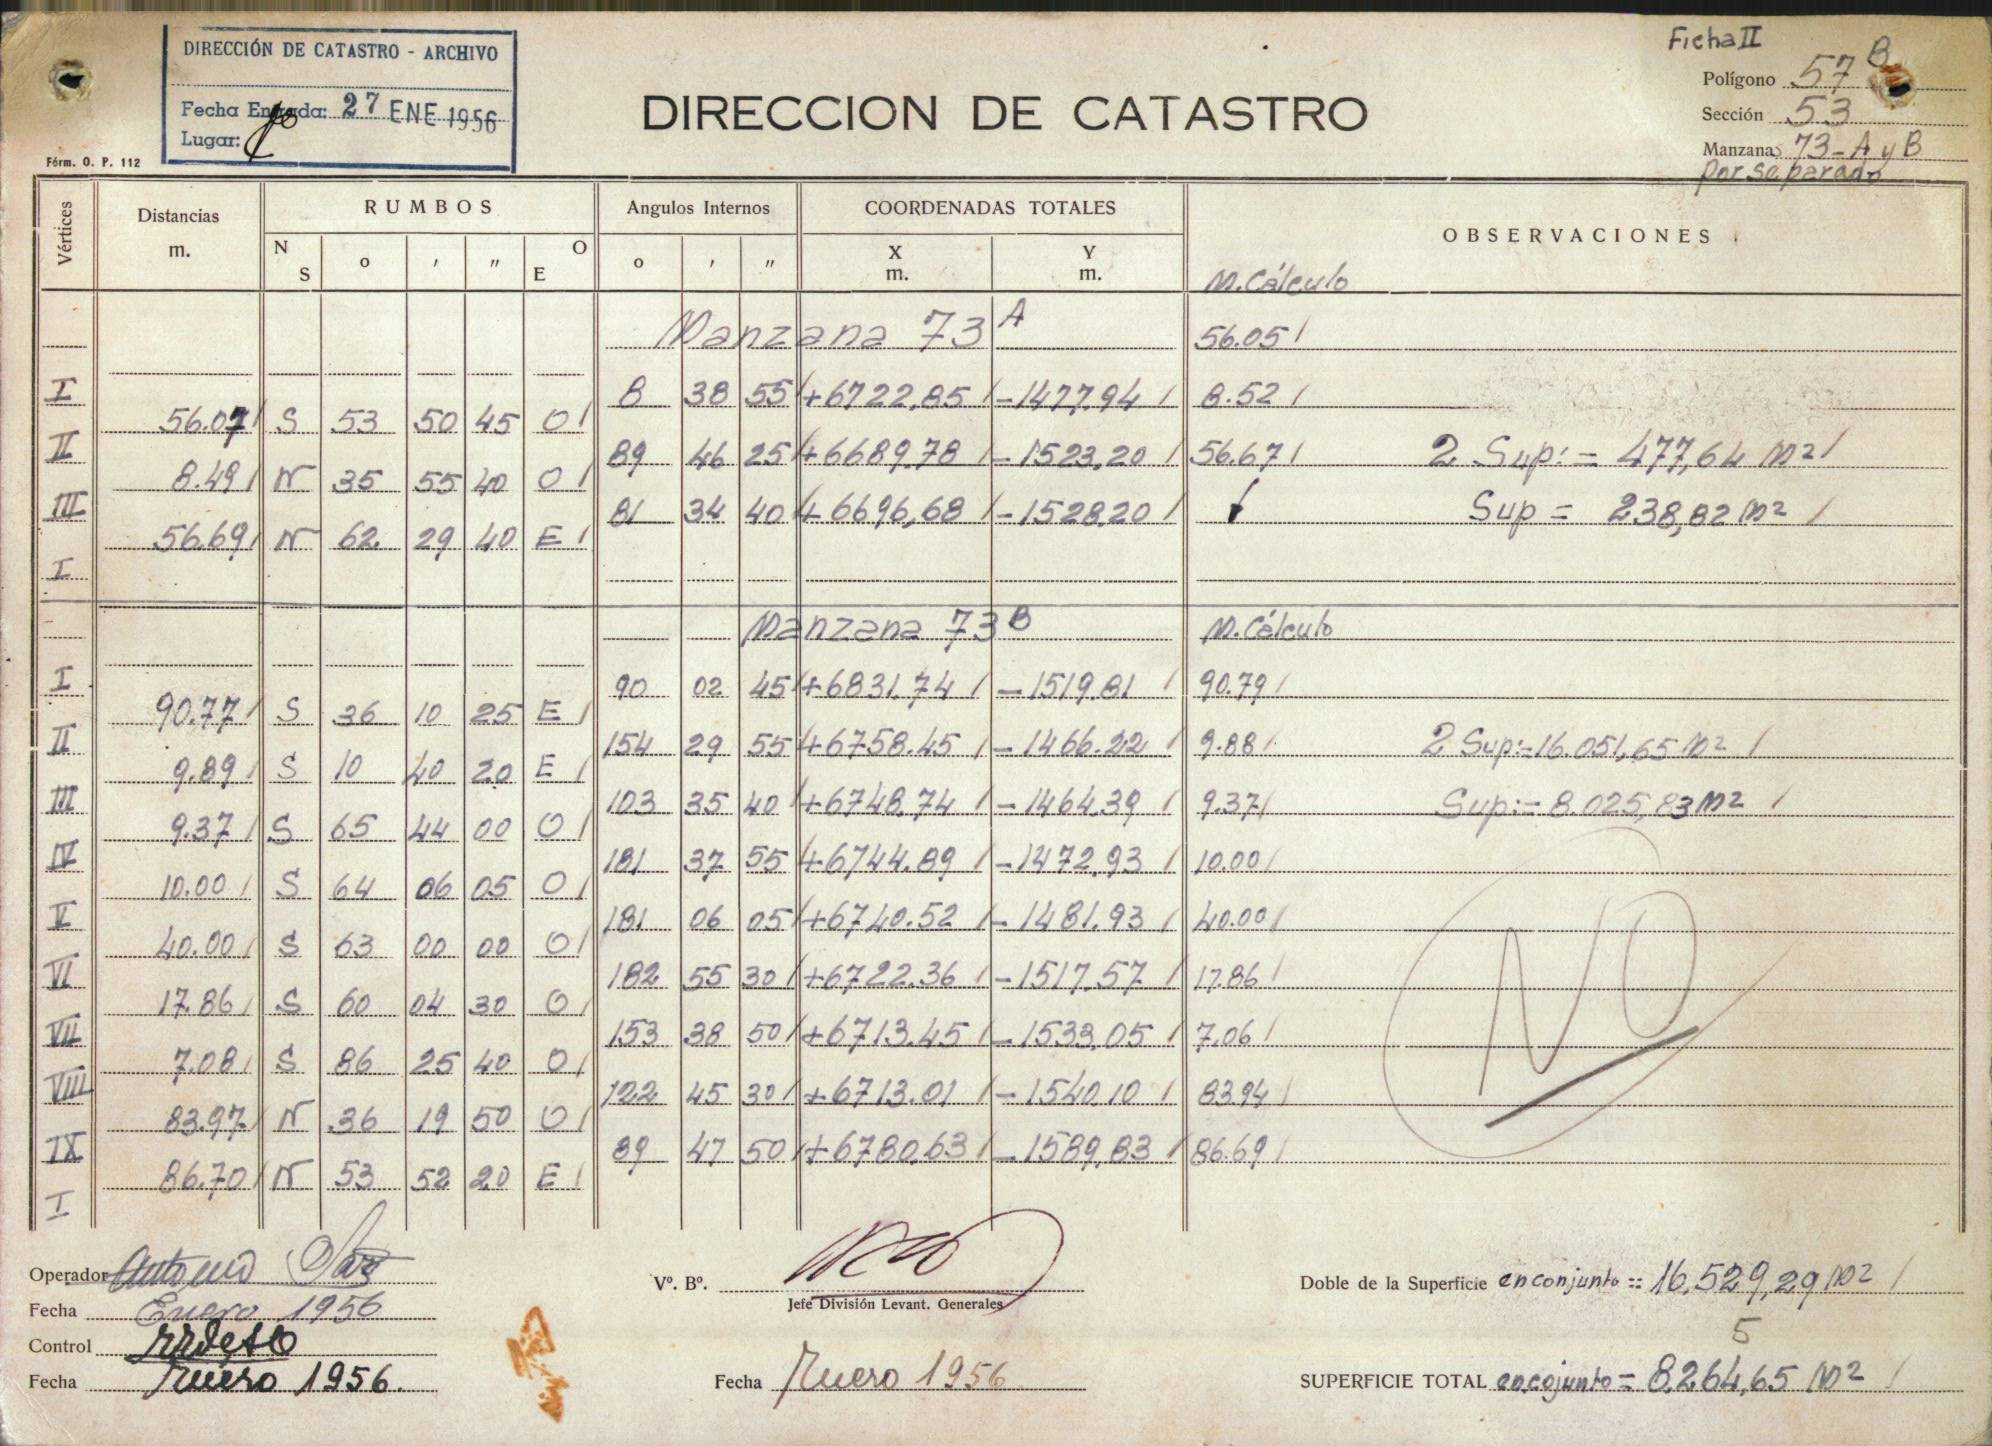 Ficha II
DIRECCIÓN DE CATASTRO - ARCHIVO
Fecha Entrada: 27 ENE 1956
Lugar:
Fórm. O. P. 112
DIRECCION DE CATASTRO
Polígono 57 B
Sección 53
Manzanas 73-A y B
por separado
Vértices Distancias m. RUMBOS Angulos Internos COORDENADAS TOTALES OBSERVACIONES
N S ° ' " E O ° ' " X m. Y m.
M. Cálculo
Manzana 73 A 56.05 /
I 8 38 55 / +6722,85 / -1477,94 / 8.52 /
56.07 / S 53 50 45 O /
II 89 46 25 / +6689,78 / -1523,20 / 56.67 / 2 Sup:= 477,64 m2 /
8.49 / N 35 55 40 O /
III 81 34 40 / +6696,68 / -1528,20 / Sup = 238,82 m2 /
56.69 / N 62 29 40 E /
I
Manzana 73 B M. Cálculo
I 90 02 45 / +6831.74 / -1519.81 / 90.79 /
90.77 / S 36 10 25 E /
II 154 29 55 / +6758.45 / -1466.22 / 9.88 / 2 Sup:=16.051,65 m2 /
9.89 / S 10 40 20 E /
III 103 35 40 / +6748.74 / -1464.39 / 9.37 / Sup:= 8.025,83 m2 /
9.37 / S 65 44 00 O /
IV 181 37 55 / +6744.89 / -1472,93 / 10.00 /
10.00 / S 64 06 05 O /
V 181 06 05 / +6740.52 / -1481.93 / 40.00 /
40.00 / S 63 00 00 O /
VI 182 55 30 / +6722.36 / -1517.57 / 17.86 /
17.86 / S 60 04 30 O /
NO
VII 153 38 50 / +6713.45 / -1533,05 / 7.06 /
7.08 / S 86 25 40 O /
VIII 122 45 30 / +6713.01 / -1540,10 / 83.94 /
83.97 / N 36 19 50 O /
IX 89 47 50 / +6780,63 / -1589,83 / 86.69 /
86.70 / N 53 52 20 E /
I
Operador Antonio
Fecha Enero 1956
Control
Fecha Enero 1956.
Vº. Bº.
Jefe División Levant. Generales
Fecha Enero 1956
Doble de la Superficie en conjunto = 16,529,29 m2 /
5
SUPERFICIE TOTAL en conjunto = 8.264,65 m2 /